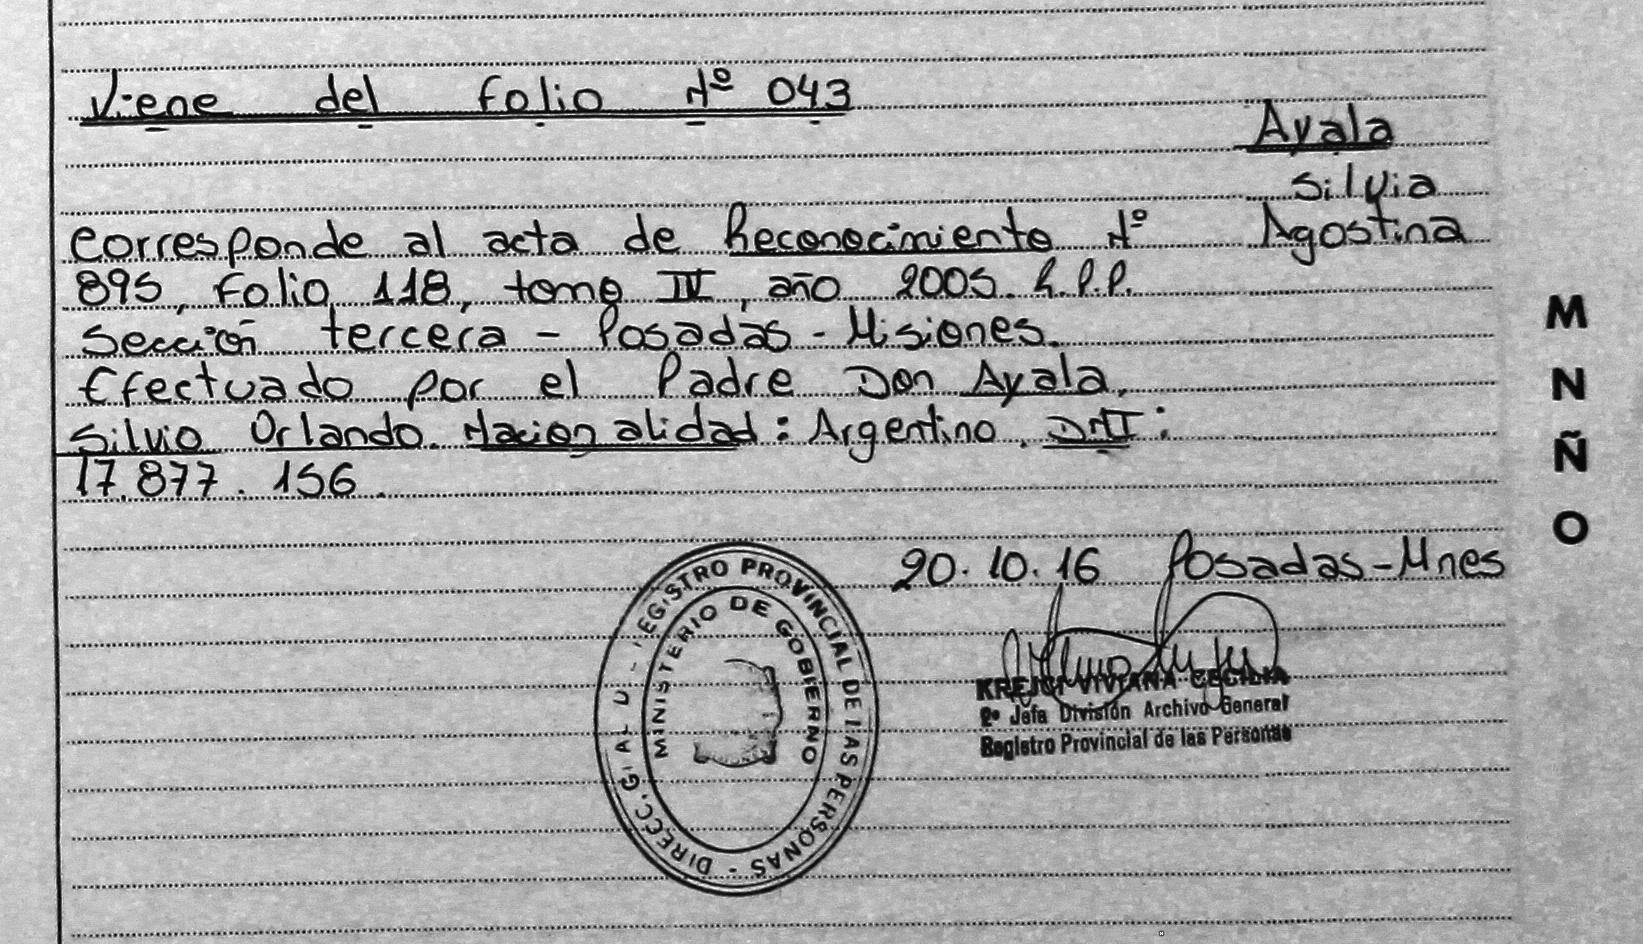 Viene del folio Nº 043
Ayala
Silvia
Agostina
Corresponde al acta de Reconocimiento Nº
895, Folio 118, tomo IV, año 2005. R.P.P.
Sección tercera - Posadas - Misiones.
Efectuado por el Padre Don Ayala,
Silvio Orlando. Nacionalidad: Argentino. DNI:
17.877.156.
20.10.16 Posadas-Mnes
KREJCI VIVIANA CECILIA
2º Jefa División Archivo General
Registro Provincial de las Personas
DIRECC. G AL D REGISTRO PROVINCIAL DE LAS PERSONAS -
MINISTERIO DE GOBIERNO
M
N
Ñ
O